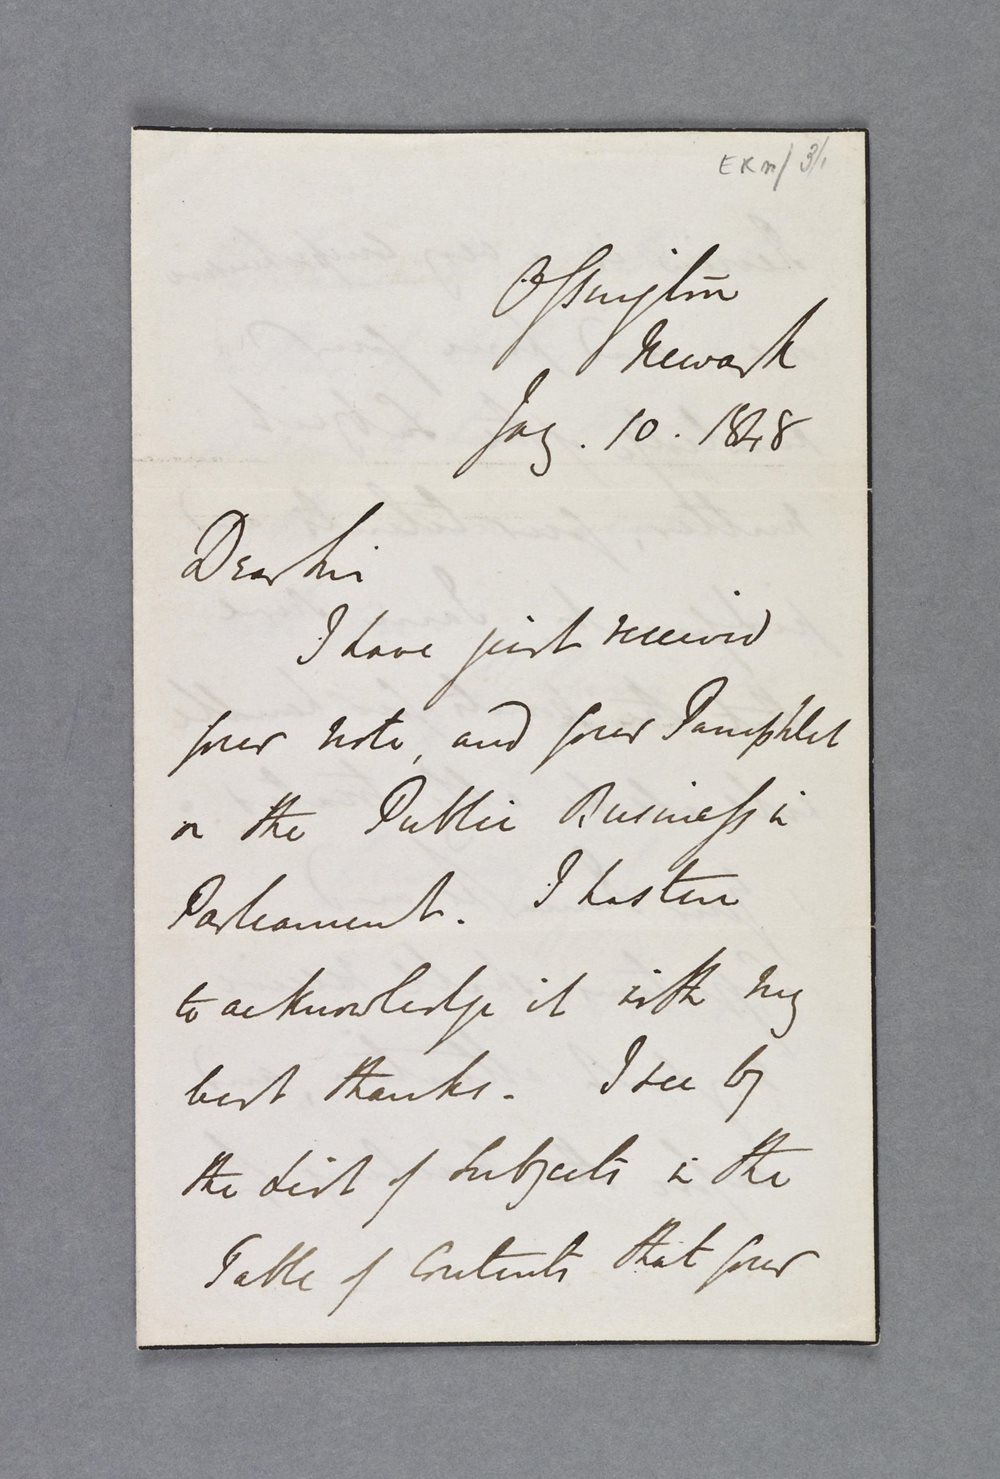 EKM/3/1
Ossington
Newark
Jay. 10. 1848
Dear Sir
I have just received
your note, and your Pamphlet
on the Public Business in
Parliament. I hasten
to acknowledge it with my
best thanks. I see by
the List of Subjects in the
Table of Contents that your